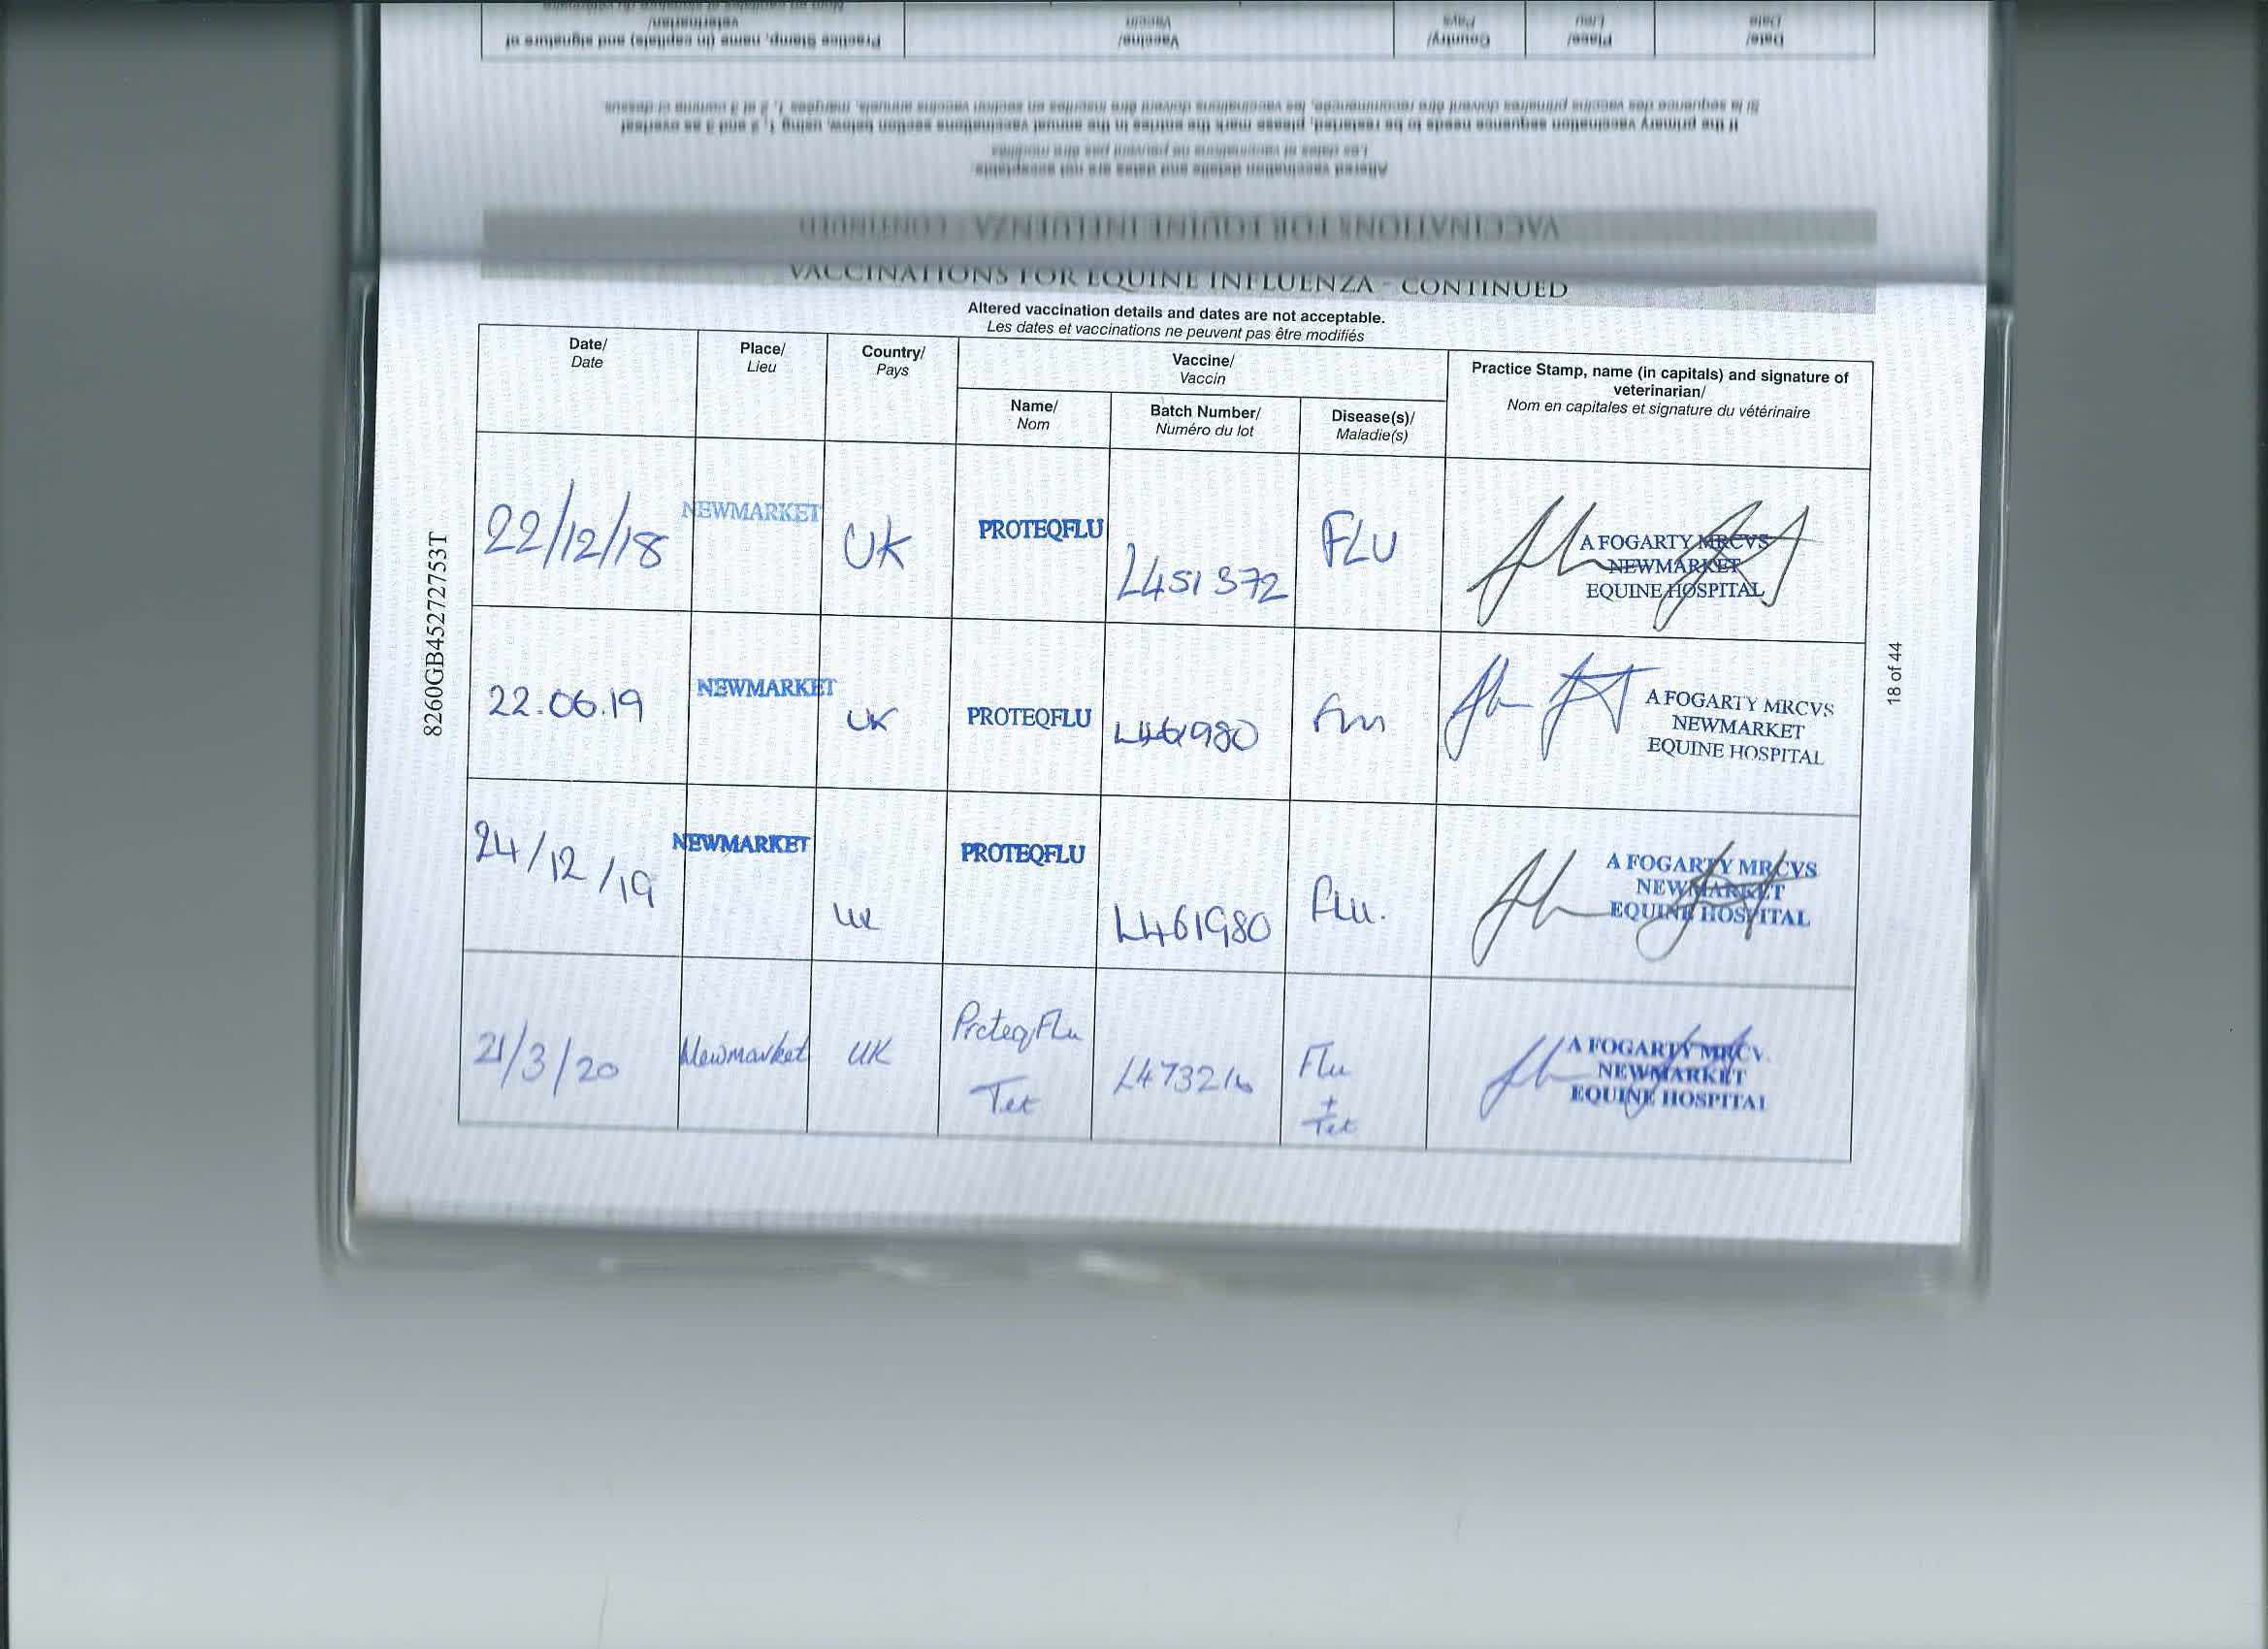 Nom en capitales et signature du vétérinaire
veterinarian/
Practice Stamp, name (in capitals) and signature of
Vaccin
Vaccine/
Pays
Country/
Lieu
Place/
Date
Date/
Si la séquence des vaccins primaires doivent être recommencée, les vaccinations doivent être inscrites en section vaccins annuels, marquées 1, 2 et 3 comme ci-dessus
If the primary vaccination sequence needs to be restarted, please mark the entries in the annual vaccinations section below, using 1, 2 and 3 as overleaf
Les dates et vaccinations ne peuvent pas être modifiés
Altered vaccination details and dates are not acceptable.
VACCINATIONS FOR EQUINE INFLUENZA - CONTINUED
VACCINATIONS FOR EQUINE INFLUENZA - CONTINUED
Altered vaccination details and dates are not acceptable.
Les dates et vaccinations ne peuvent pas être modifiés
Date/
Date
Place/
Lieu
Country/
Pays
Vaccine/
Vaccin
Name/
Nom
Batch Number/
Numéro du lot
Disease(s)/
Maladie(s)
Practice Stamp, name (in capitals) and signature of
veterinarian/
Nom en capitales et signature du vétérinaire
22/12/18
NEWMARKET
UK
PROTEQFLU
L451372
FLU
A FOGARTY MRCVS
NEWMARKET
EQUINE HOSPITAL
22.06.19
NEWMARKET
UK
PROTEQFLU
L461980
Flu
A FOGARTY MRCVS
NEWMARKET
EQUINE HOSPITAL
24/12/19
NEWMARKET
UK
PROTEQFLU
L461980
Flu.
A FOGARTY MRCVS
NEWMARKET
EQUINE HOSPITAL
21/3/20
Newmarket
UK
ProteqFlu
Tet
L473216
Flu
+
Tet
A FOGARTY MRCV
NEWMARKET
EQUINE HOSPITAL
8260GB45272753T
18 of 44